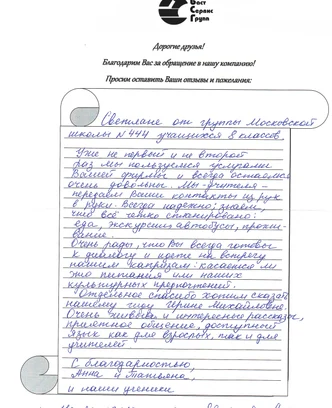 Васт
Сервис
Групп
Дорогие друзья!
Благодарим Вас за обращение в нашу компанию!
Просим оставить Ваши отзывы и пожелания:
Светлане от группы Московской
школы №444 учащихся 8 классов.
Уже не первый и не второй
раз мы пользуемся услугами
Вашей фирмы и всегда остаёмся
очень довольны. Мы-учителя-
передаём Ваши контакты из рук
в руки. Всегда надежно: знаем,
что всё четко спланировано:
еда, экскурсия автобусы, прожи-
вание.
Очень рады, что Вы всегда готовы
к диалогу и идете на встречу
нашим "капризам"- касается ли
это питания или наших
культурных предпочтений.
Отдельное спасибо хотим сказать
нашему гиду Ирине Михайловне.
Очень живые и интересные рассказы,
приятное общение, доступный
язык как для взрослых, так и для
учителей
С благодарностью,
Анна и Татьяна,
и наши ученики